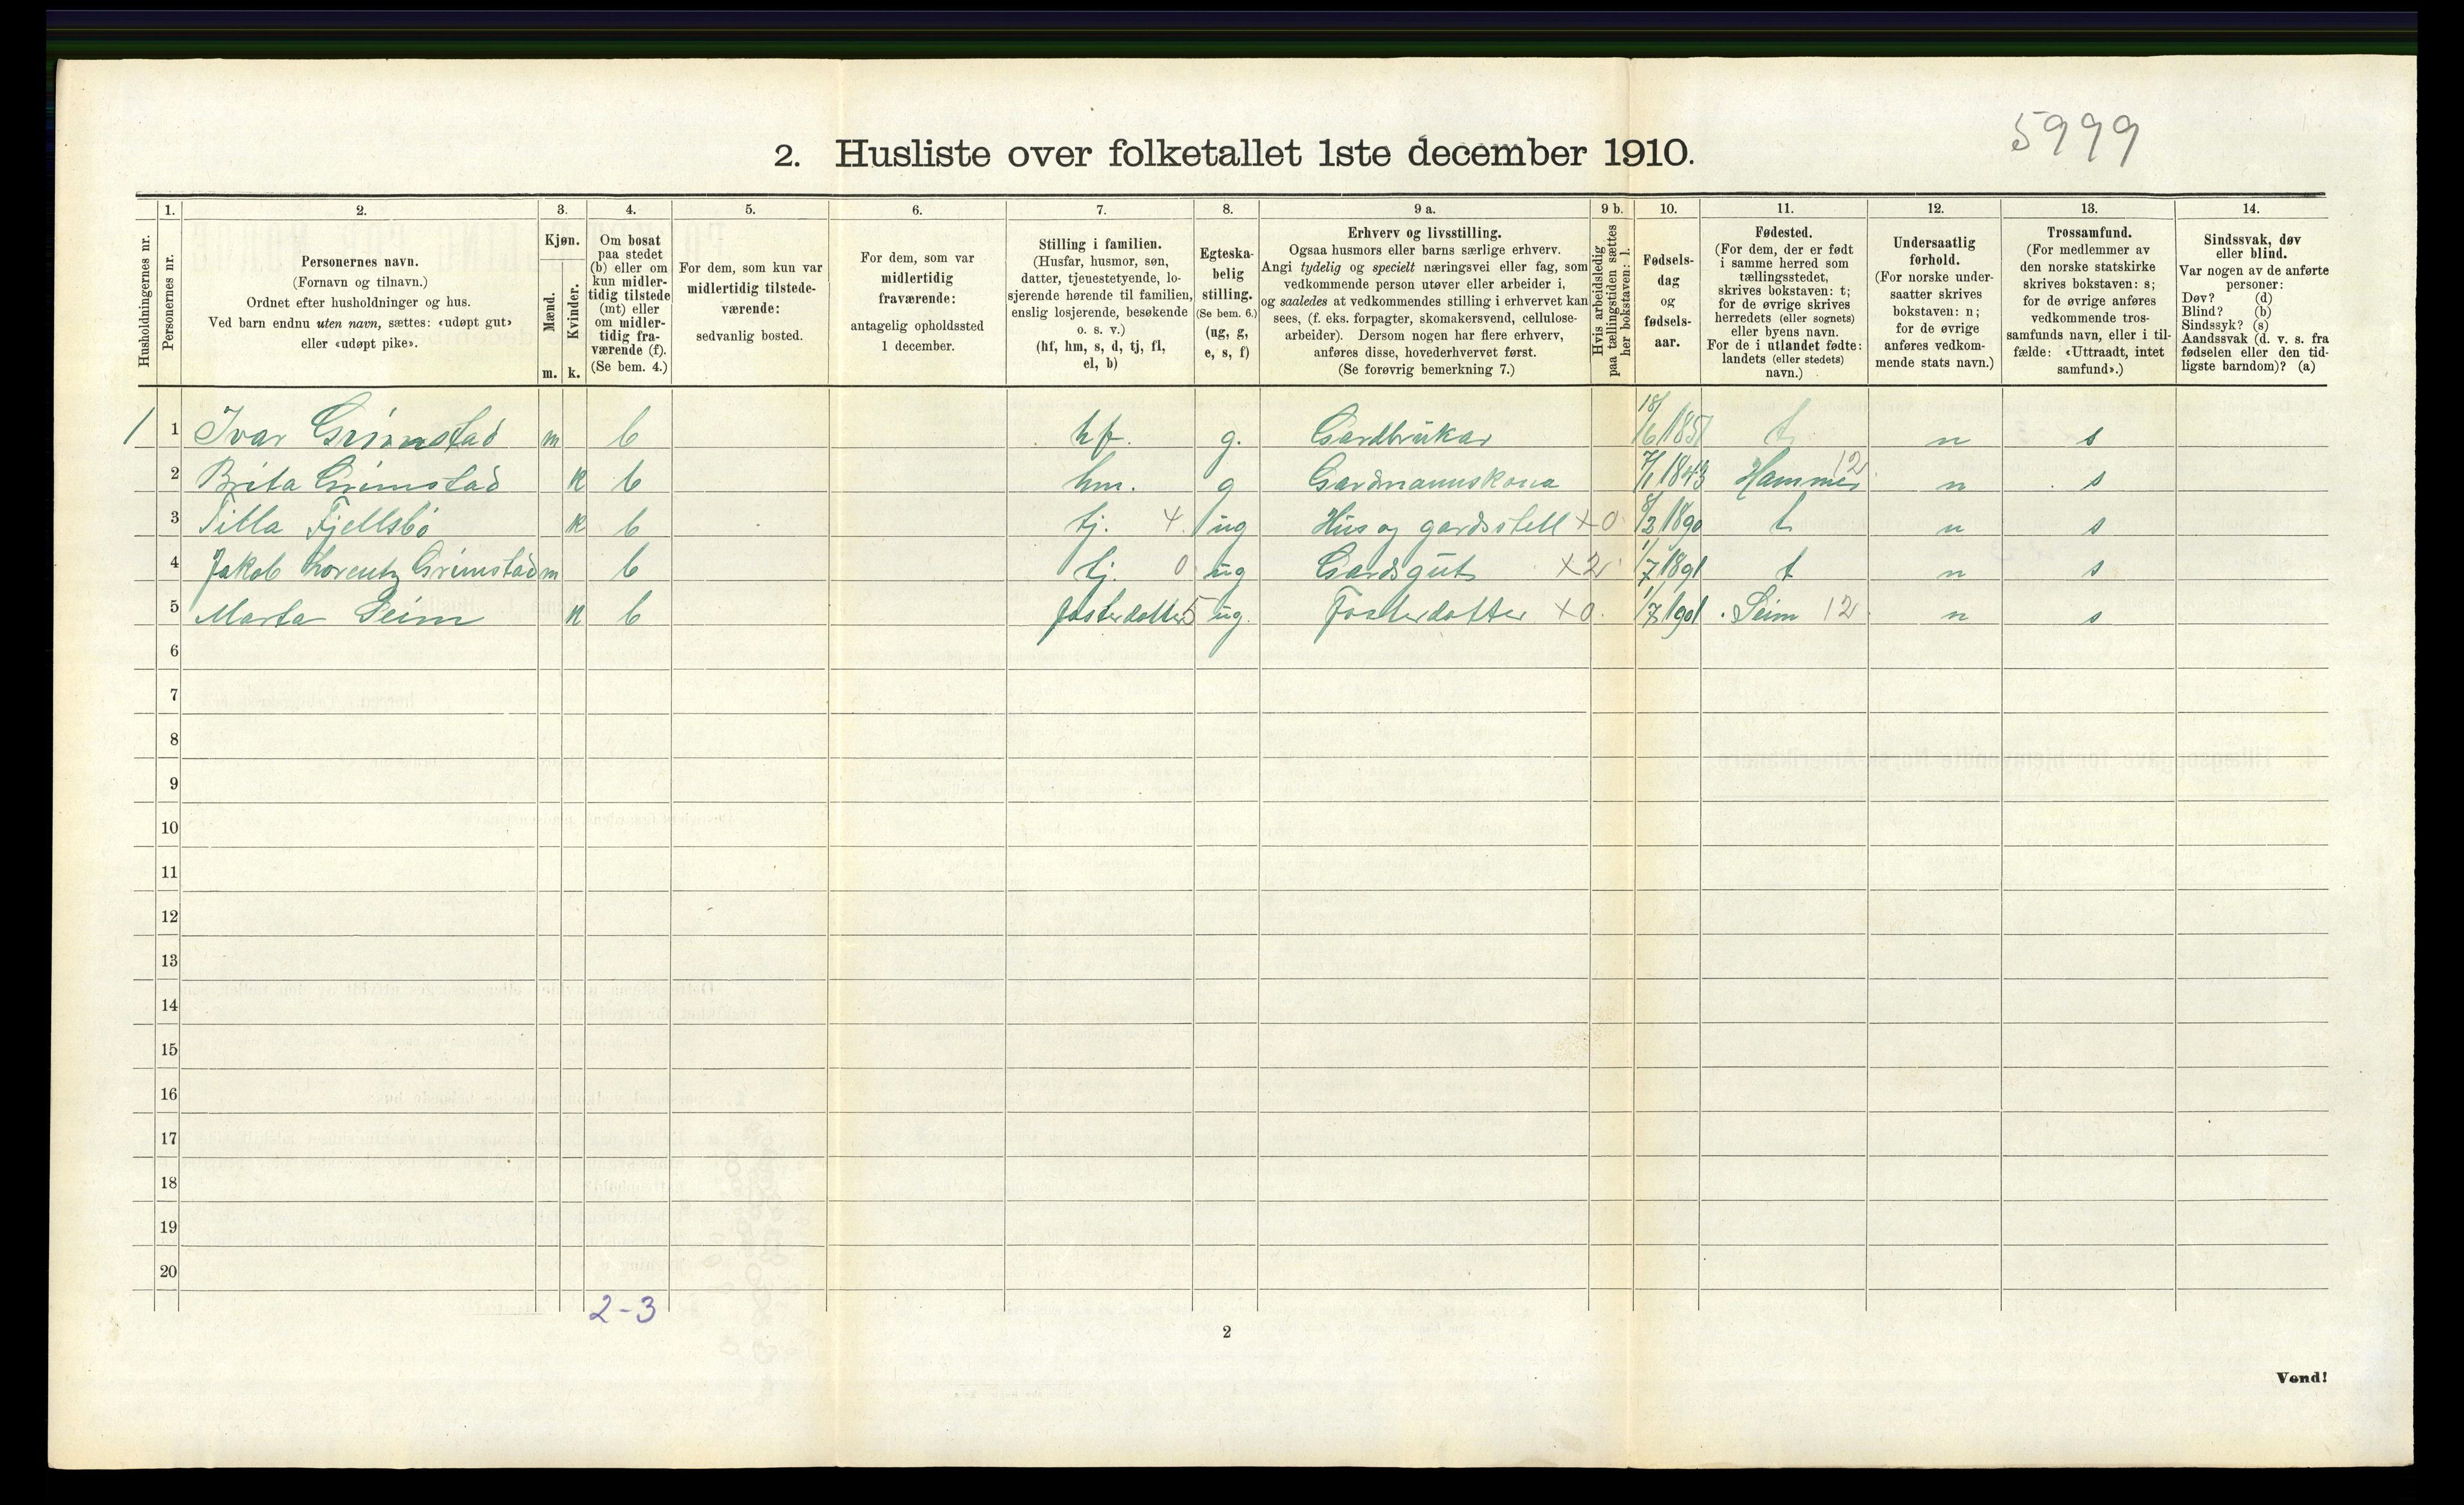 5999
2. Husliste over folketallet 1ste december 1910.
Husholdningernes nr.
1.
Personernes nr.
2.
Personernes navn.
(Fornavn og tilnavn.)
Ordnet efter husholdninger og hus.
Ved barn endnu uten navn, sættes: «udøpt gut»
eller «udøpt pike».
3.
Kjøn.
Mænd.
m.
Kvinder.
k.
4.
Om bosat
paa stedet
(b) eller om
kun midler-
tidig tilstede
(mt) eller
om midler-
tidig fra-
værende (f).
(Se bem. 4.)
5.
For dem, som kun var
midlertidig tilstede-
værende:
sedvanlig bosted.
6.
For dem, som var
midlertidig
fraværende:
antagelig opholdssted
1 december.
7.
Stilling i familien.
(Husfar, husmor, søn,
datter, tjenestetyende, lo-
sjerende hørende til familien,
enslig losjerende, besøkende
o. s. v.)
(hf, hm, s, d, tj, fl,
el, b)
8.
Egteska-
belig
stilling.
(Se bem. 6.)
(ug, g,
e, s, f)
9 a.
Erhverv og livsstilling.
Ogsaa husmors eller barns særlige erhverv.
Angi tydelig og specielt næringsvei eller fag, som
vedkommende person utøver eller arbeider i,
og saaledes at vedkommendes stilling i erhvervet kan
sees, (f. eks. forpagter, skomakersvend, cellulose-
arbeider). Dersom nogen har flere erhverv,
anføres disse, hovederhvervet først.
(Se forøvrig bemerkning 7.)
9 b.
Hvis arbeidsledig
paa tællingstiden sættes
her bokstaven: l.
10.
Fødsels-
dag
og
fødsels-
aar.
11.
Fødested.
(For dem, der er født
i samme herred som
tællingsstedet,
skrives bokstaven: t;
for de øvrige skrives
herredets (eller sognets)
eller byens navn.
For de i utlandet fødte:
landets (eller stedets)
navn.)
12.
Undersaatlig
forhold.
(For norske under-
saatter skrives
bokstaven: n;
for de øvrige
anføres vedkom-
mende stats navn.)
13.
Trossamfund.
(For medlemmer av
den norske statskirke
skrives bokstaven: s;
for de øvrige anføres
vedkommende tros-
samfunds navn, eller i til-
fælde: «Uttraadt, intet
samfund».)
14.
Sindssvak, døv
eller blind.
Var nogen av de anførte
personer:
Døv? (d)
Blind? (b)
Sindssyk? (s)
Aandssvak (d. v. s. fra
fødselen eller den tid-
ligste barndom)? (a)
1 1 Ivar Grimstad m b hf. g. Gardbrukar 18/6 1851 t n s
2 Brita Grimstad k b hm. g Gardmannskona 7/1 1843 Hammer 12 n s
3 Titla Fjellsbø k b tj. 4 ug Hus og gardsstell x 0 8/3 1890 t n s
4 Jakob Lorentz Grimstad m b tj. 0 ug Gardsgut x 2 1/7 1891 t n s
5 Marta Seim k b fosterdotter 5 ug. Fosterdotter x 0. 1/7 1901 Seim 12 n s
6
7
8
9
10
11
12
13
14
15
16
17
18
19
20
2-3
2
Vend!